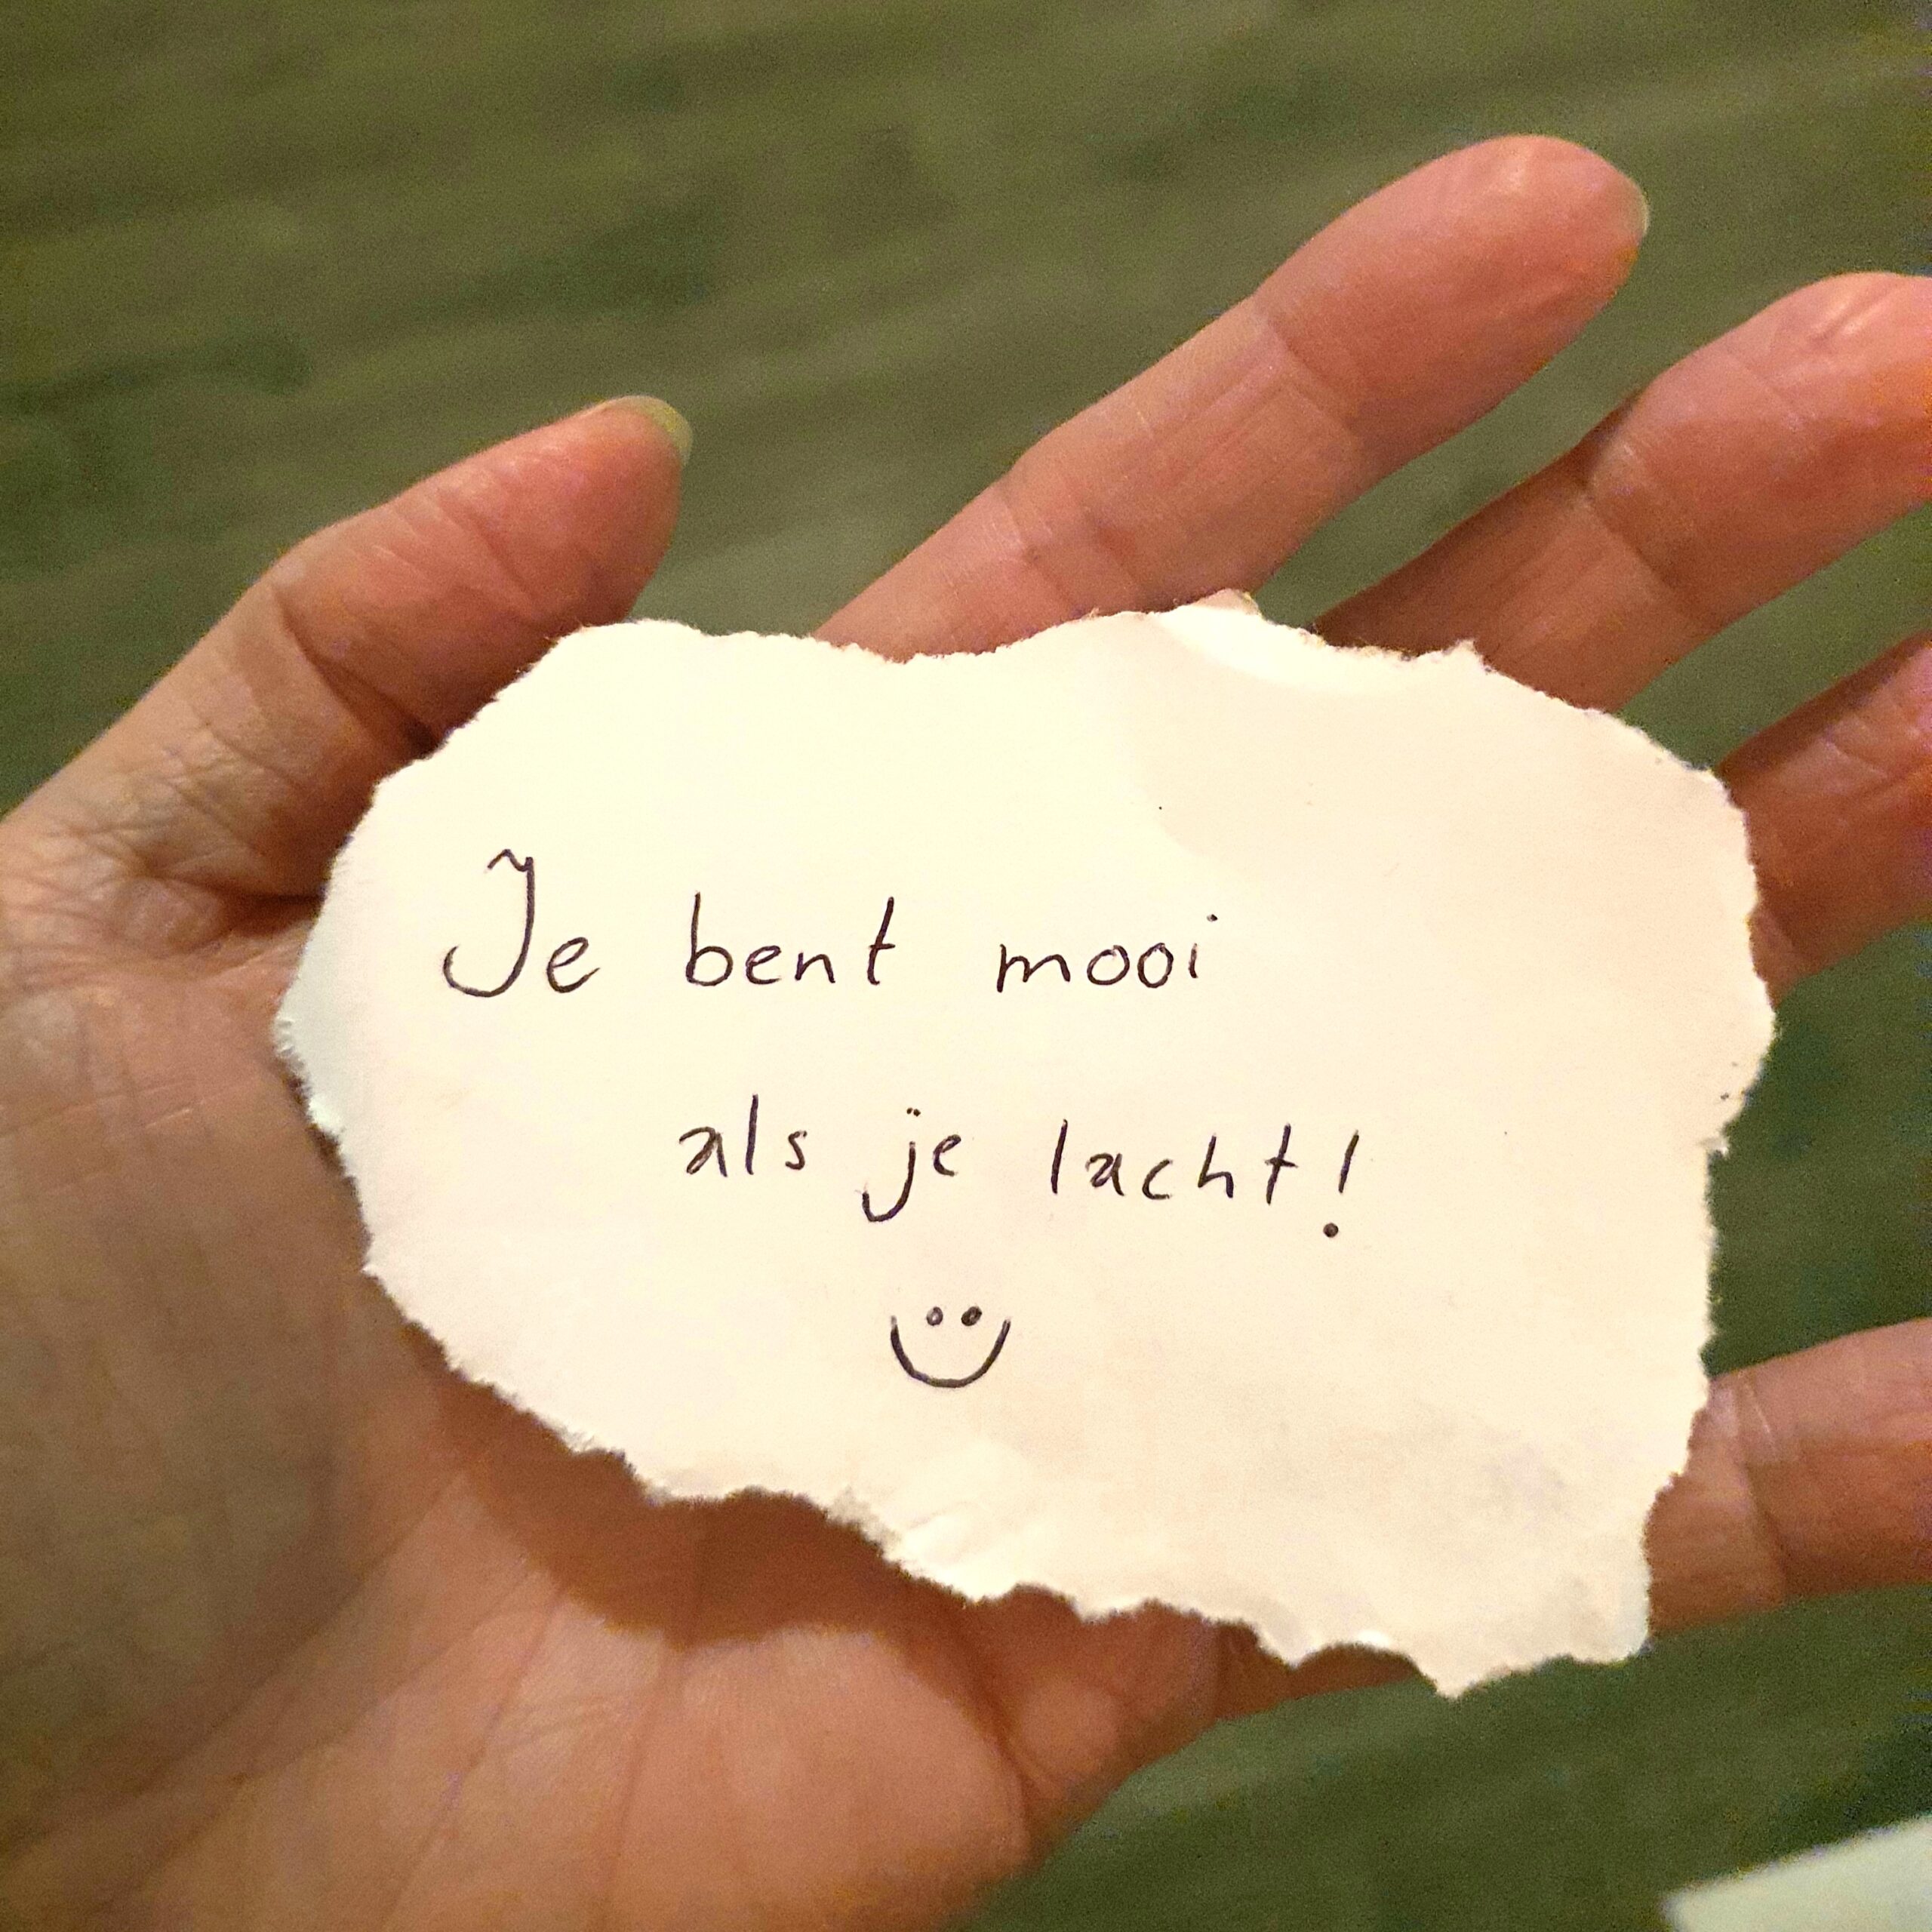 Je bent mooi
als je lacht!